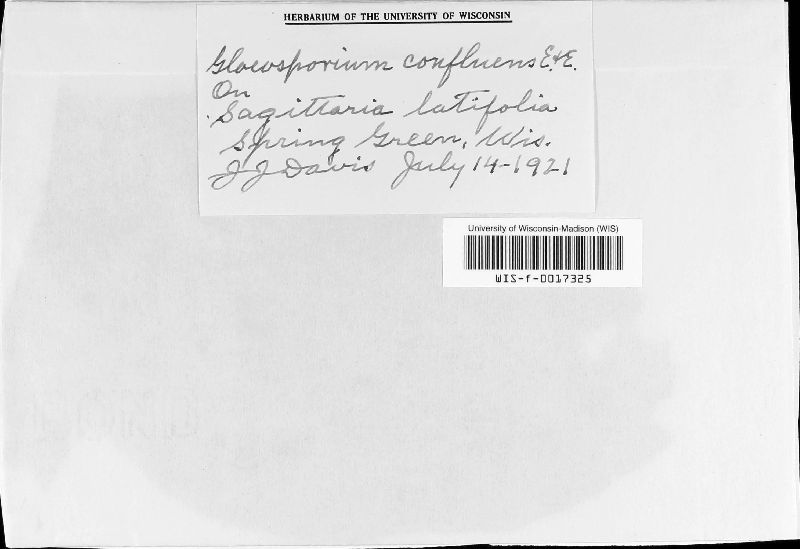 HERBARIUM OF THE UNIVERSITY OF WISCONSIN
Gloeosporium confluens E.&E.
On
Sagittaria latifolia
Spring Green, Wis.
J J Davis July 14-1921
University of Wisconsin-Madison (WIS)
WIS-f-0017325